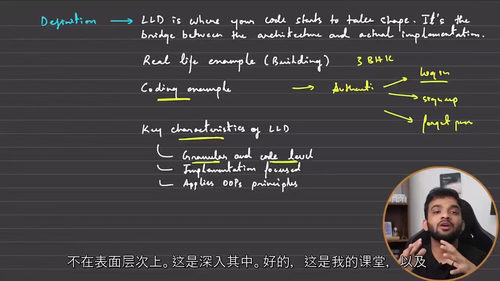 Definition → LLD is where your code starts to take shape. It's the
bridge between the architecture and actual implementation.
Real life example (Building) 3 BHK
Coding example → Authenti
log in
sign up
forget pass
Key characteristics of LLD
Granular and code level
Implementation focused
Applies OOPs principles
不在表面层次上。这是深入其中。好的，这是我的课堂，以及